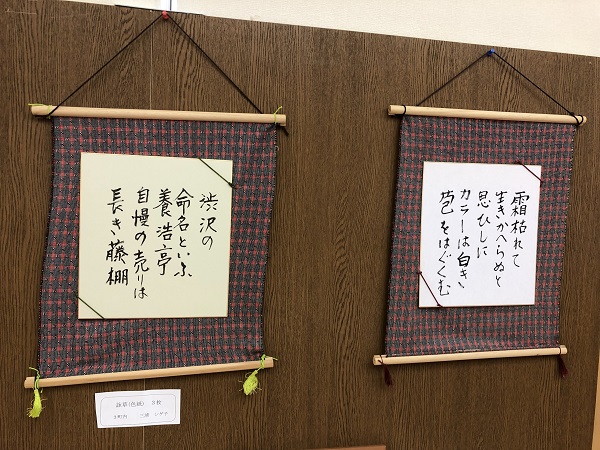 渋沢の
命名といふ
養浩亭
自慢の売りは
長き藤棚
霜枯れて
生きかへらぬと
思ひしに
カラーは白き
苞をはぐくむ
詠草(色紙) 3枚